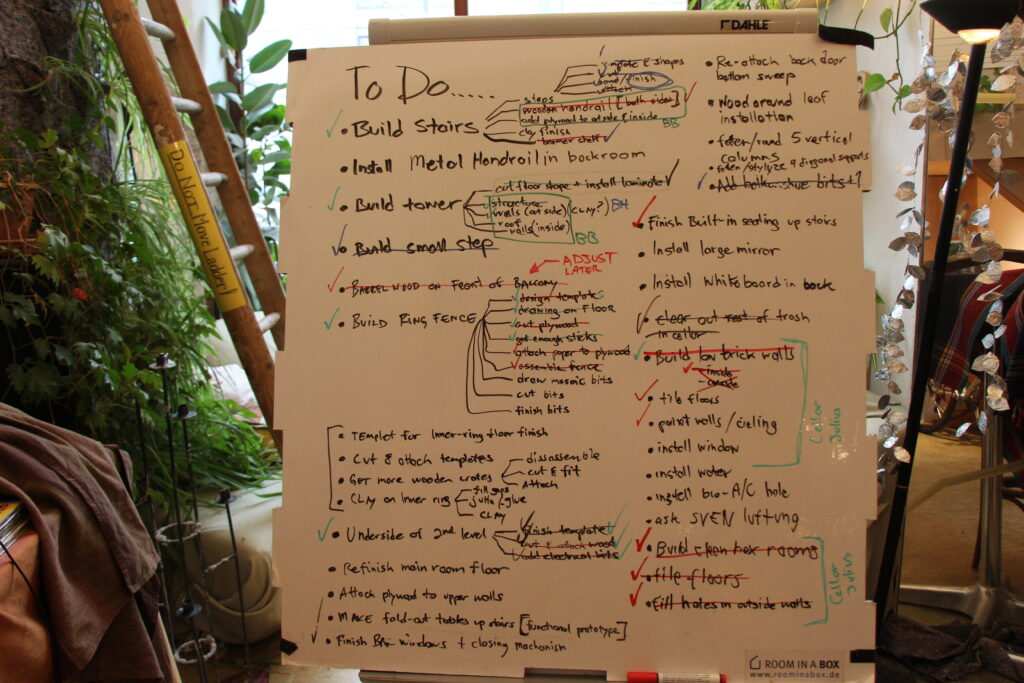 DAHLE
Do Not Move Ladder!
To Do.....
template & shapes
sand/finish
attach
steps
wooden handrail [both sides]
add plywood to outside & inside
BB
clay finish
corner shelf
• Build Stairs
• Install Metal Handrail in backroom
cut floor shape + install laminate
• Build tower
structure
walls (outside) (CLAY?) BH
roof
walls (inside)
BB
• Build small step
ADJUST
LATER
• BARREL WOOD ON FRONT OF BALCONY
• BUILD RING FENCE
design template
drawing on FLOOR
cut plywood
get enough sticks
attach paper to plywood
assemble fence
draw mosaic bits
cut bits
finish bits
• TEMPLET for Inner-ring floor finish
• Cut & attach templates
• GET more wooden crates
dissassemble
cut & fit
Attach
• CLAY on Inner ring
fill gaps
jute/glue
CLAY
• Underside of 2nd level
finish template
cut & attach wood
add electrical bits
• Refinish main room floor
• Attach plywod to upper walls
• MAKE fold-out tables up stairs [functional prototype]
• Finish windows + closing mechanism
• Re-attach back door
bottom sweep
• Wood around loof
installation
• 5 vertical
columns
4 diagonal supports
• Add bits
• Finish Built-in seating up stairs
• Install large mirror
• Install Whiteboard in back
• clear out rest of trash
in cellar
• Build low brick walls
- inside
- outside
• tile floors
• paint walls / cieling
• install window
• install water
• install bio-A/C hole
• ask SVEN luftung
Cellar
Julius
• Build clean box rooms
• tile floors
• Fill holes in outside walls
Cellar
Julius
ROOM IN A BOX
www.roominabox.de